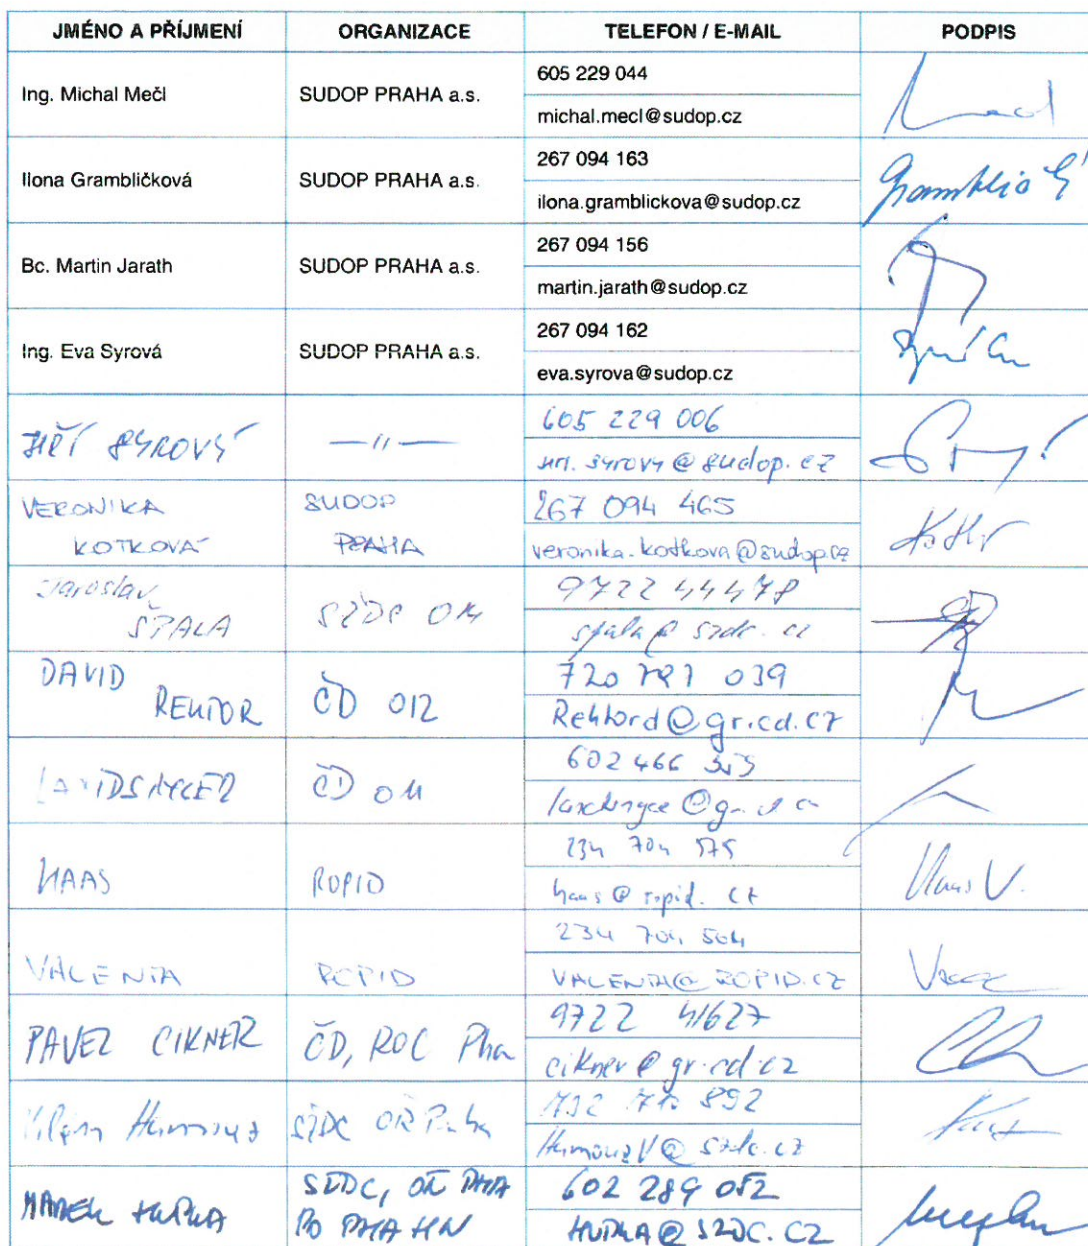 JMÉNO A PŘÍJMENÍ ORGANIZACE TELEFON / E-MAIL PODPIS
Ing. Michal Mečl SUDOP PRAHA a.s.
605 229 044
michal.mecl@sudop.cz
Ilona Grambličková SUDOP PRAHA a.s.
267 094 163
ilona.gramblickova@sudop.cz
Bc. Martin Jarath SUDOP PRAHA a.s.
267 094 156
martin.jarath@sudop.cz
Ing. Eva Syrová SUDOP PRAHA a.s.
267 094 162
eva.syrova@sudop.cz
JIŘÍ SYROVÝ —〃—
605 229 006
jiri.syrovy@sudop.cz
VERONIKA SUDOP
KOTKOVÁ PRAHA
267 094 465
veronika.kotkova@sudop.cz
Jaroslav
ŠPALA SŽDC
9722 44478
spala@szdc.cz
DAVID
REKTOR ČD 012
720 039
Rektord@gr.cd.cz
ČD
602 466
HAAS ROPID
234 704 575
haas@ropid.cz
Haas V.
VALENTA ROPID
234 704 504
VALENTA@ROPID.CZ
PAVEL CIKNER ČD, ROC Pha
9722 41627
cikner@gr.cd.cz
Hamouz SŽDC OŘ Praha
892
HamouzV@szdc.cz
MAREK HUPKA SŽDC, OŘ PHA
PO PHA HN
602 289 052
HUPKA@SZDC.CZ